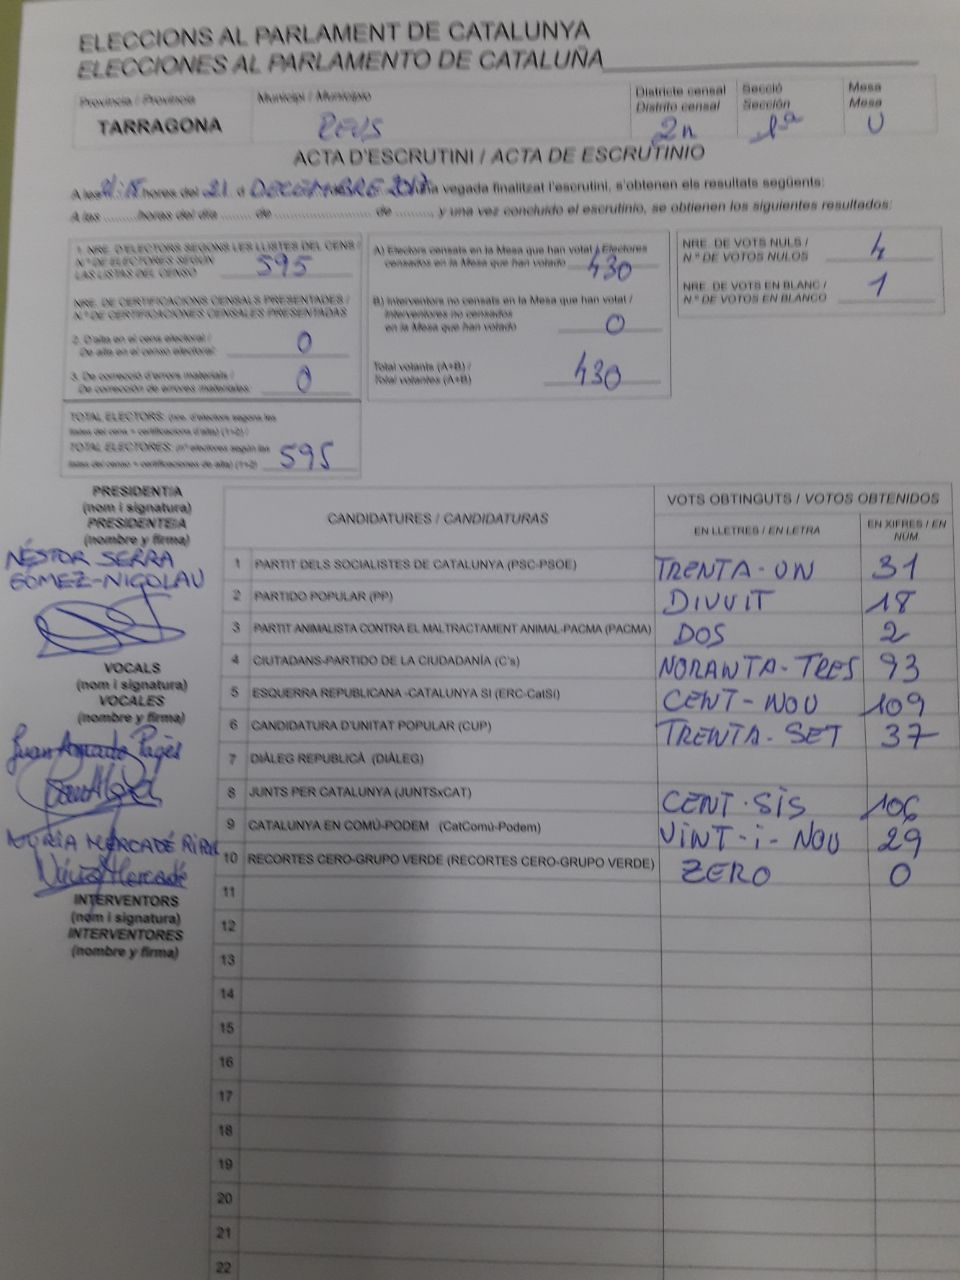 ELECCIONS AL PARLAMENT DE CATALUNYA
ELECCIONES AL PARLAMENTO DE CATALUÑA
Província / Provincia
TARRAGONA
Municipi / Municipio
REUS
Districte censal
Distrito censal
2n
Secció
Sección
1ª
Mesa
Mesa
U
ACTA D'ESCRUTINI / ACTA DE ESCRUTINIO
A les 21:15 hores del 21 d DECEMBRE 2017 una vegada finalitzat l'escrutini, s'obtenen els resultats següents:
A las ......... horas del día ........ de ............................ de ........., y una vez concluido el escrutinio, se obtienen los siguientes resultados:
1. NRE. D'ELECTORS SEGONS LES LLISTES DEL CENS /
N.º DE ELECTORES SEGÚN
LAS LISTAS DEL CENSO
595
NRE. DE CERTIFICACIONS CENSALS PRESENTADES /
N.º DE CERTIFICACIONES CENSALES PRESENTADAS
2. D'alta en el cens electoral /
De alta en el censo electoral:
0
3. De correcció d'errors materials /
De corrección de errores materiales:
0
TOTAL ELECTORS: (nre. d'electors segons les
llistes del cens + certificacions d'alta) (1+2) /
TOTAL ELECTORES: (nº electores según las
listas del censo + certificaciones de alta) (1+2)
595
A) Electors censats en la Mesa que han votat / Electores
censados en la Mesa que han votado
430
B) Interventors no censats en la Mesa que han votat /
Interventores no censados
en la Mesa que han votado
0
Total votants (A+B) /
Total votantes (A+B)
430
NRE. DE VOTS NULS /
N.º DE VOTOS NULOS
4
NRE. DE VOTS EN BLANC /
N.º DE VOTOS EN BLANCO
1
PRESIDENT/A
(nom i signatura)
PRESIDENTE/A
(nombre y firma)
NÉSTOR SERRA
GÓMEZ-NICOLAU
VOCALS
(nom i signatura)
VOCALES
(nombre y firma)
Juan Amado Pagès
NÚRIA MERCADÉ RIPOLL
Núria Mercadé
INTERVENTORS
(nom i signatura)
INTERVENTORES
(nombre y firma)
CANDIDATURES / CANDIDATURAS
VOTS OBTINGUTS / VOTOS OBTENIDOS
EN LLETRES / EN LETRA
EN XIFRES / EN NÚM.
1 PARTIT DELS SOCIALISTES DE CATALUNYA (PSC-PSOE) TRENTA-UN 31
2 PARTIDO POPULAR (PP) DIVUIT 18
3 PARTIT ANIMALISTA CONTRA EL MALTRACTAMENT ANIMAL-PACMA (PACMA) DOS 2
4 CIUTADANS-PARTIDO DE LA CIUDADANÍA (C's) NORANTA-TRES 93
5 ESQUERRA REPUBLICANA -CATALUNYA SI (ERC-CatSí) CENT-NOU 109
6 CANDIDATURA D'UNITAT POPULAR (CUP) TRENTA-SET 37
7 DIÀLEG REPUBLICÀ (DIÀLEG)
8 JUNTS PER CATALUNYA (JUNTSxCAT) CENT-SIS 106
9 CATALUNYA EN COMÚ-PODEM (CatComú-Podem) VINT-i-NOU 29
10 RECORTES CERO-GRUPO VERDE (RECORTES CERO-GRUPO VERDE) ZERO 0
11
12
13
14
15
16
17
18
19
20
21
22